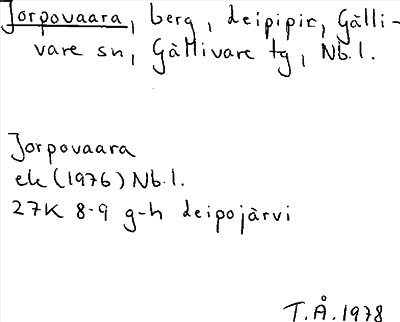 Jorpovaara, berg, deipipir, Gälli-
vare sn, Gällivare tg, Nb.l.
Jorpovaara
ek (1976) Nb.l.
27K 8-9 g-h deipojärvi
T.Å. 1978